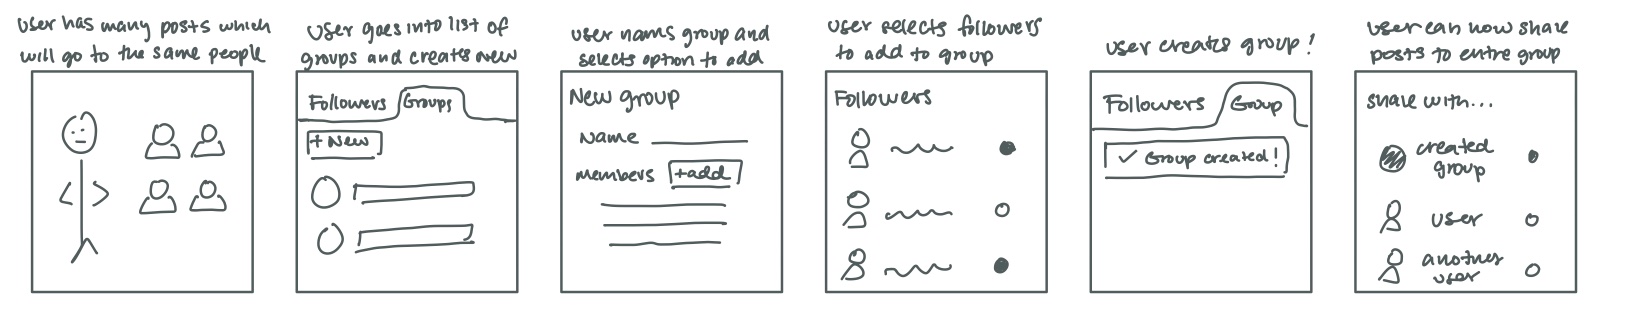 user has many posts which
will go to the same people
user goes into list of
groups and creates new
Followers Groups
+ New
user nams group and
selects option to add
New group
Name
members +add
user selects followers
to add to group
Followers
user creates group!
Followers Group
✓ Group created!
user can now share
posts to entire group
share with...
created
group
user
another
user